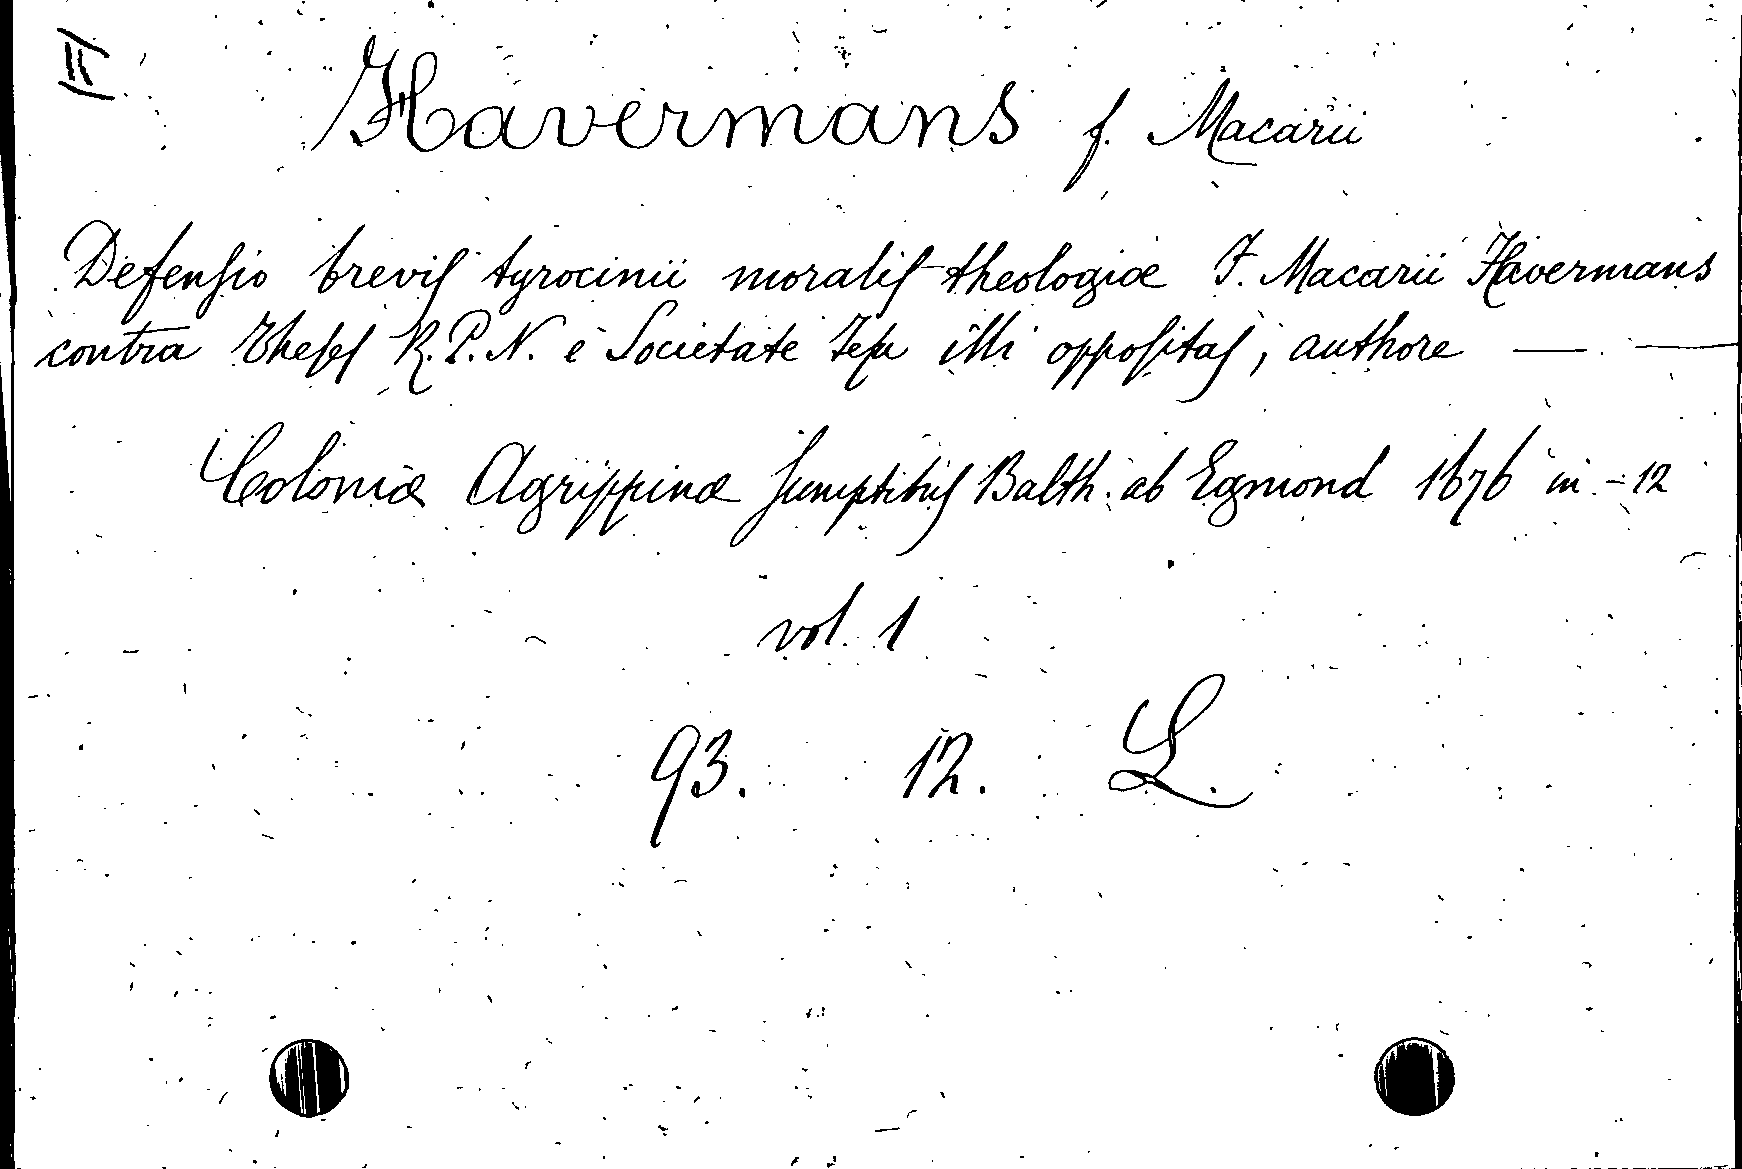 II
Havermans f. Macarii
Defenſio breviſ tyrocinii moraliſ theologiæ F. Macarii Havermans
contra Theſeſ R. P. N. è Societate Jeſu illi oppoſitaſ, authore — —
Coloniæ Agrippinæ ſumptibuſ Balth. ab Egmond 1676 in-12
vol. 1
93. 12. L.